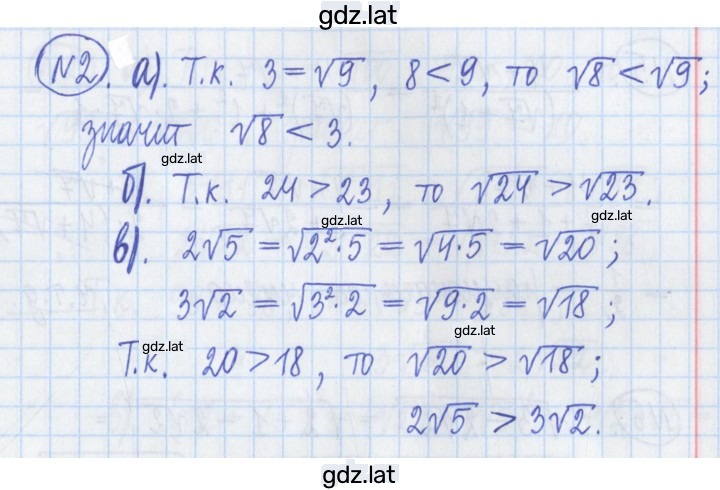 gdz.lat
№2. а). Т.к. 3 = √9, 8 < 9, то √8 < √9;
значит √8 < 3.
gdz.lat
б). Т.к. 24 > 23, то √24 > √23.
gdz.lat
gdz.lat
в). 2√5 = √2²·5 = √4·5 = √20;
3√2 = √3²·2 = √9·2 = √18;
gdz.lat
gdz.lat
Т.к. 20 > 18, то √20 > √18;
2√5 > 3√2.
gdz.lat